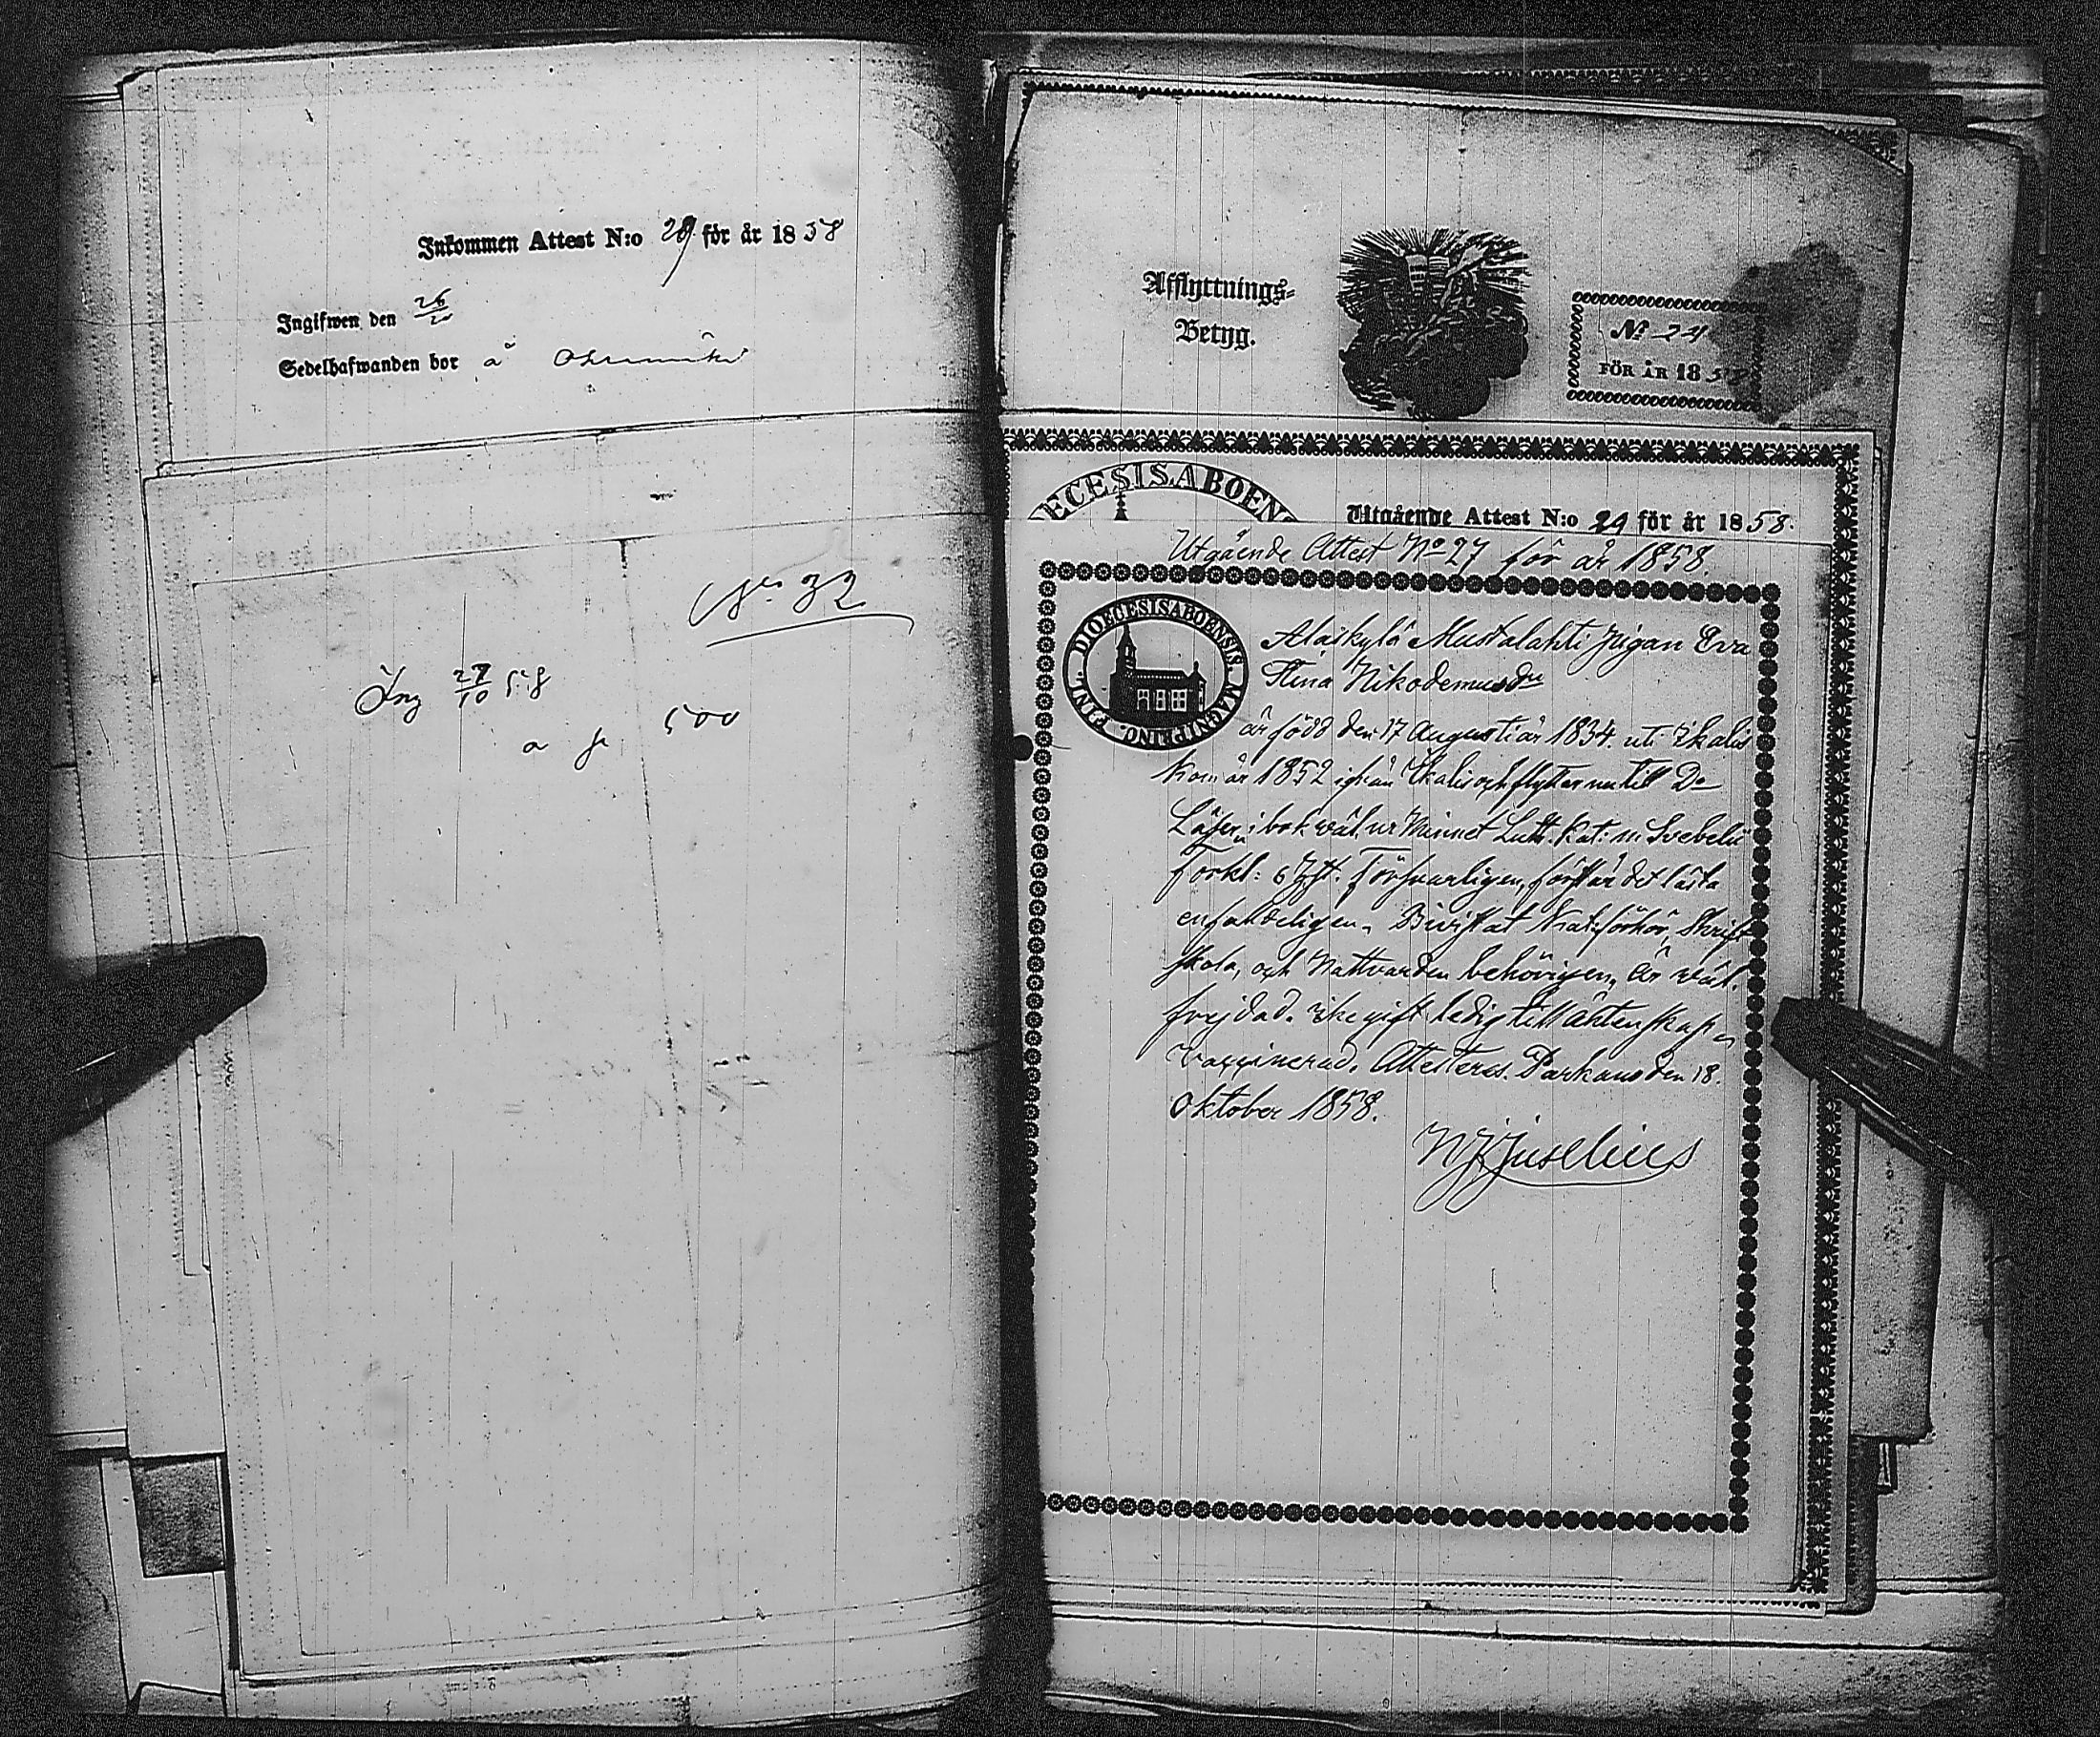 Inkommen Attest N:o 29 för år 1858
Ingifwen den 26
Sedelhafwanden bor å
No 32
Ing 27/10 58
a p 500
Afflyttnings-
Betyg.
No 24
FÖR ÅR 1858
ECESIS.ABOEN
Utgående Attest N:o 29 för år 1858.
Utgående Attest No 27 för år 1858.
DIOECESIS ABOENSIS. MAGNI PRINC. FINL.
Alaskylä Mustalahti pigan Eva
Stina Nikodemusdr
är född den 17 Augusti år 1834. uti Ikalis
Kom år 1852 ifrån Ikalis och flyttar nu till Do
Läser i bok väl, ur Minnet Luth. Kat: m. Svebelii
Förkl: 6 Hst. Försvarligen, förstår det lästa
enfaldeligen. Bivistat Kat:förhör, Skrift-
skola, och Nattvarden behörigen, är väl.
frejdad. Icke gift ledig till äktenskap
vaccinerad. Attesteras. Parkano den 18.
Oktober 1858.
Juselius